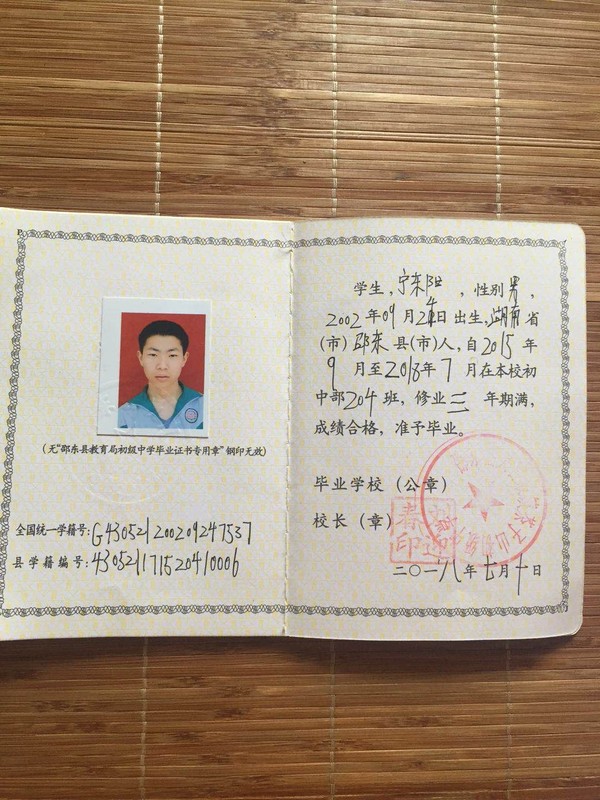 (无“邵东县教育局初级中学毕业证书专用章”钢印无效)
全国统一学籍号:G430521200209247537
县学籍编号:430521171520410006
学生,宁东阳,性别男,
2002年09月24日出生,湖南省
(市)邵东县(市)人,自2015年
9月至2018年7月在本校初
中部204班,修业三年期满,
成绩合格,准予毕业。
毕业学校(公章)
校长(章)
春
印
二〇一八年七月十日